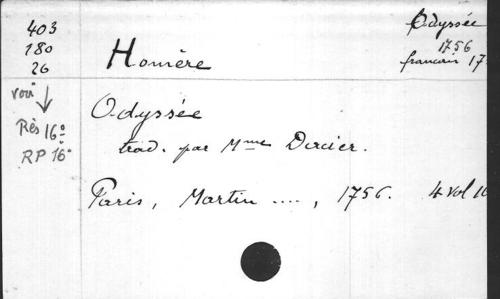 403
180
26
voir
↓
Rès 16°
RP 16°
Odyssée
1756
francais 17
Homère
Odyssée
trad. par Mme Dacier.
Paris, Martin ...., 1756. 4 vol 16